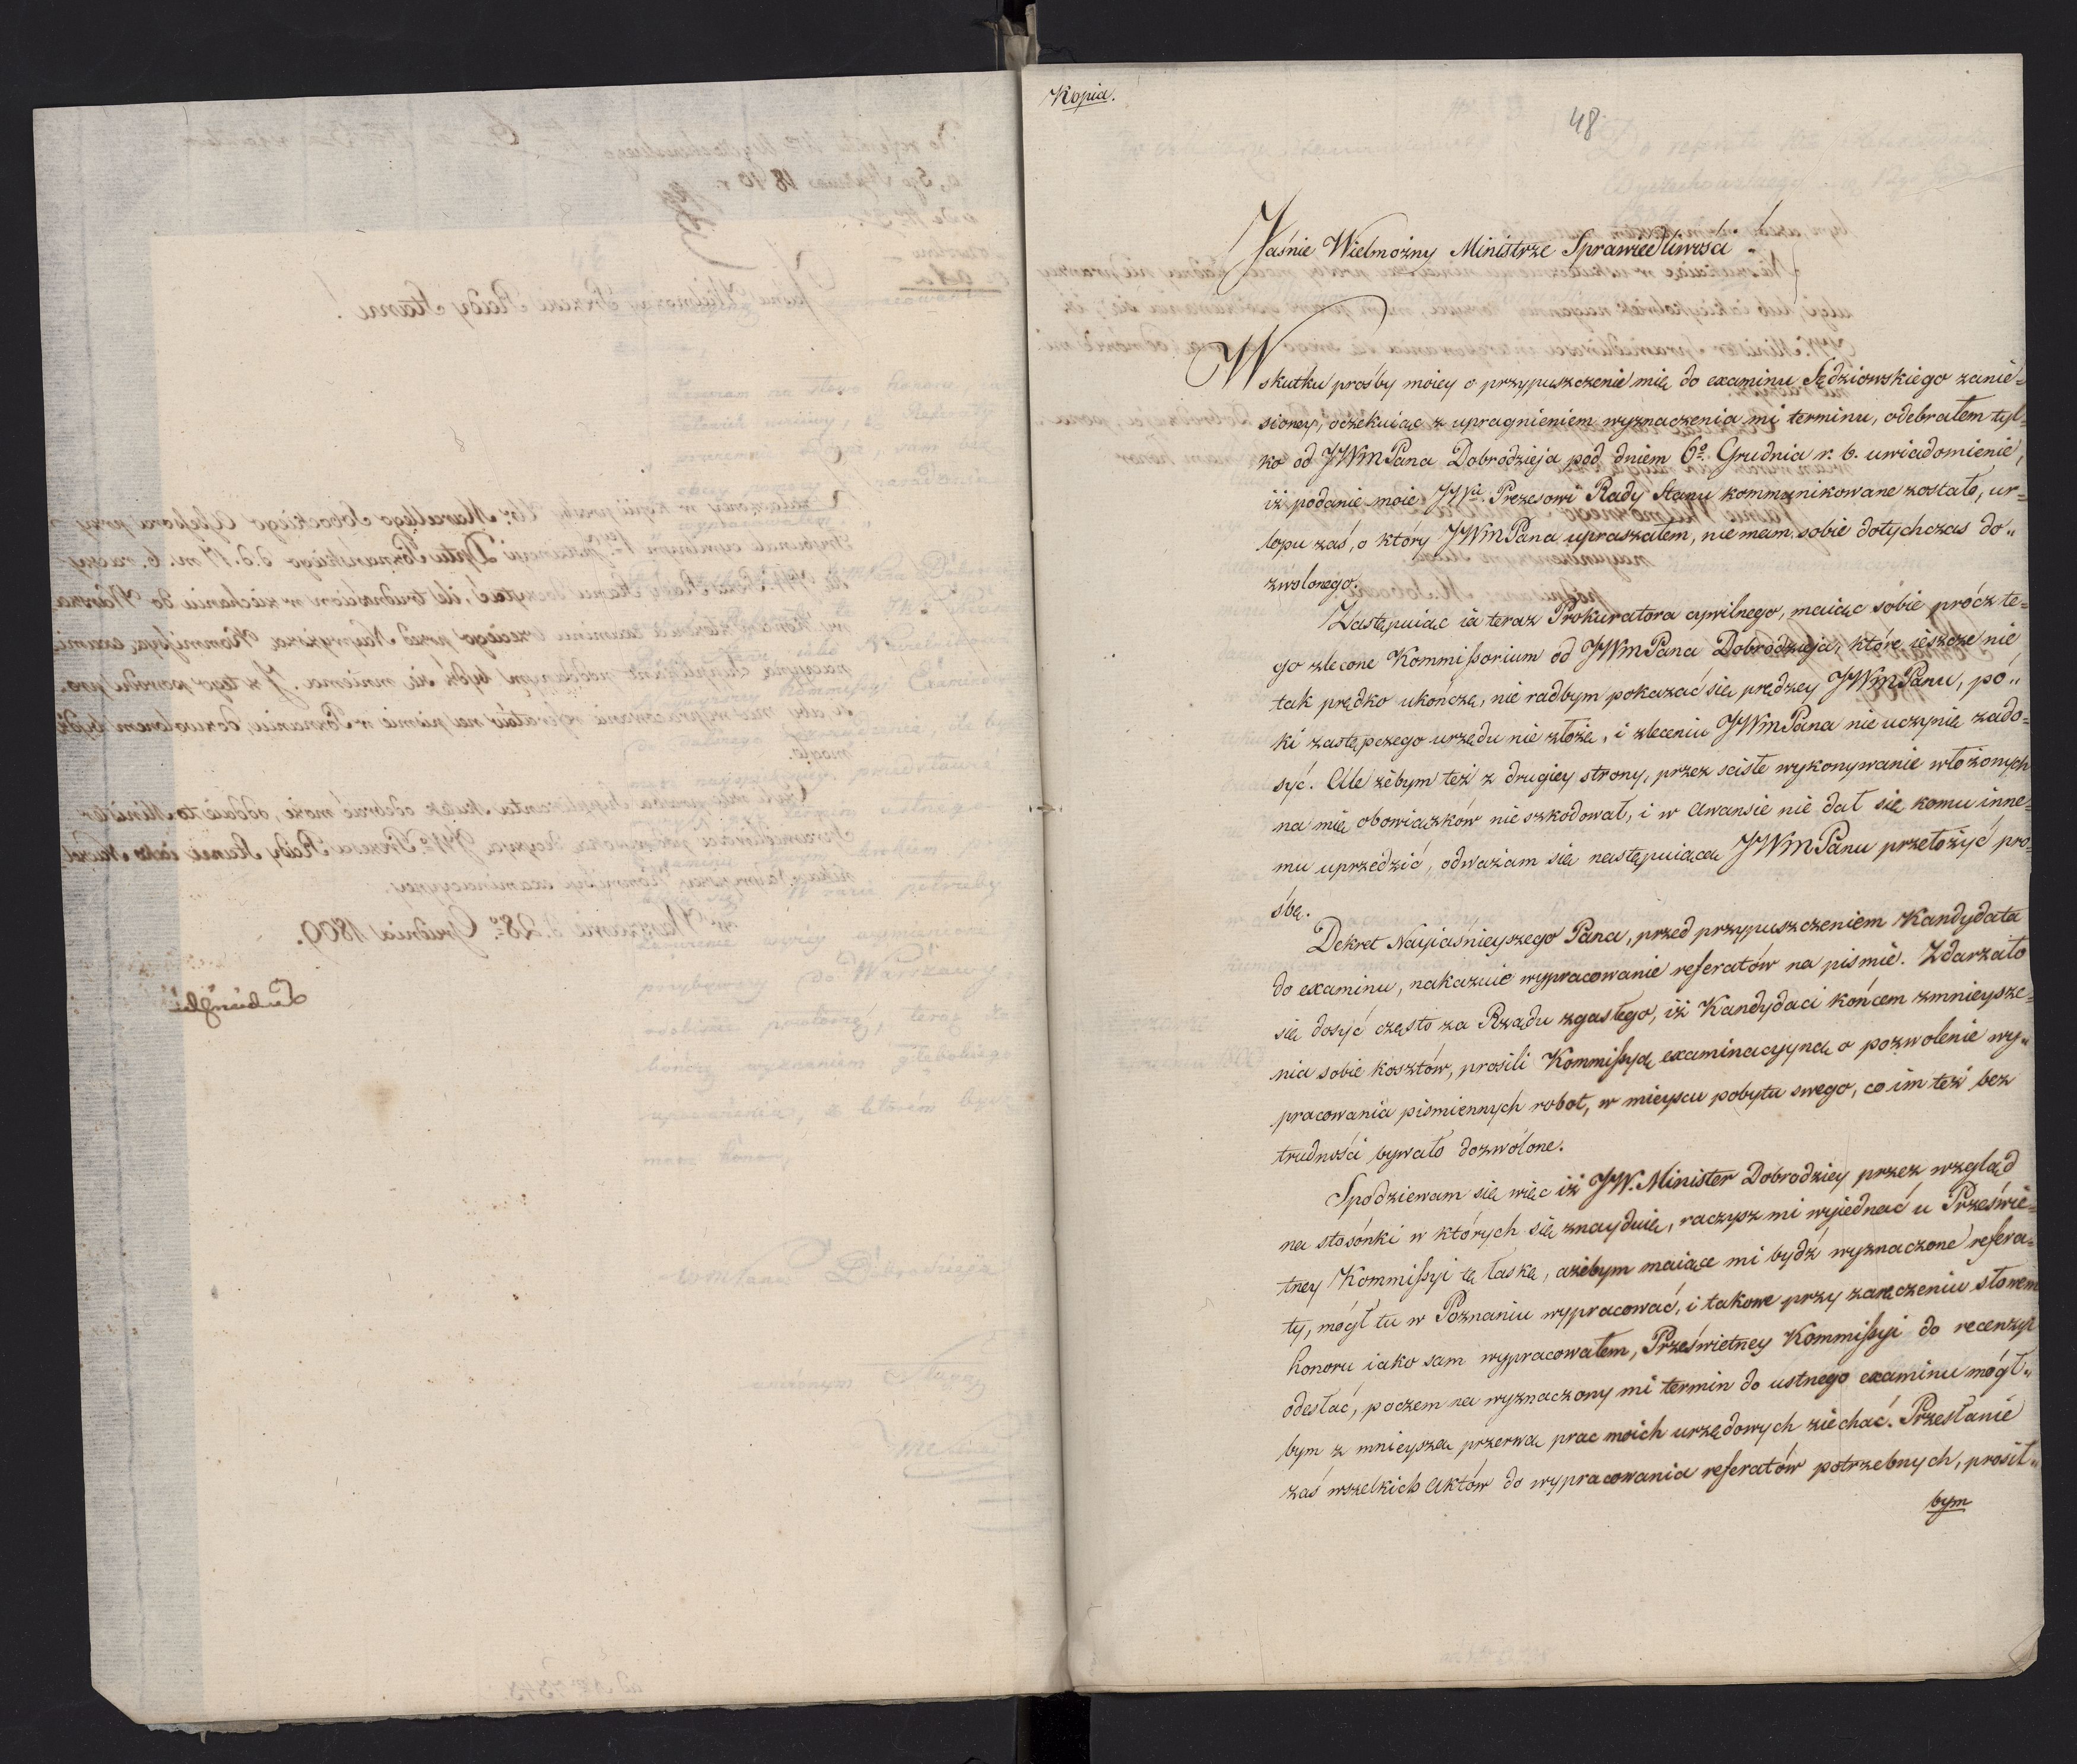 Kopia.
48
Jaśnie Wielmożny Ministrze Sprawiedliwości
W
skutku prośby moiey o przypuszczenie mię do examinu Sędziowskiego zanie=
sioney, oczekuiąc z upragnieniem wyznaczenia mi terminu, odebrałem tyl=
ko od JWmPana Dobrodzieja pod dniem 6º Grudnia r. b. uwiadomienie,
iż podanie moie JWu Prezesowi Rady Stanu kommunikowane zostało, ur=
lopu zaś, o który JWmPana upraszałem, nie mam sobie dotychczas do„
zwolonego.
Zastępuiąc ia teraz Prokuratora cywilnego, maiąc sobie prócz te=
go zlecone Kommissorium od JWmPana Dobrodzieja, które ieszcze nie
tak prędko ukończę, nie radbym pokazać się prędzey JWmPanu, pó„
ki zastępczego urzędu nie złożę, i zleceniu JWmPana nie uczynię zado=
syć. Ale żebym też z drugiey strony, przez sciste wykonywanie włożonych
na mię obowiązków nie szkodował, i w Awansie nie dał się komu inne=
mu uprzedzić, odważam się następuiącą JWmPanu przełożyć pro=
śbę.
Dekret Nayjaśnieyszego Pana, przed przypuszczeniem Kandydata
do examinu, nakazuie wypracowanie referatów na pismie. Zdarzało
się dosyć często za Rządu zgasłego, iż Kandydaci końcem zmnieysze=
nia sobie kosztów, prosili Kommissyą examinacyyną o pozwolenie wy„
pracowania pismiennych robot, w mieyscu pobytu swego, co im też bez
trudności bywało dozwolone.
Spodziewam się więc iż JW. Minister Dobrodziey przez wzgląd
na stosónki w których się znayduię, raczysz mi wyjednać u Prześwie=
tney Kommissyi tę łaskę, ażebym maiące mi bydź wyznaczone refera=
ty, mógł tu w Poznaniu wypracować, i takowe przy zaręczeniu słowem
honoru iako sam wypracowałem, Prześwietney Kommissyi do recenzyi
odesłać, poczem na wyznaczony mi termin do ustnego examinu mógł„
bym z mnieyszą przerwą prac moich urzędowych ziechać. Przesłanie
zaś wszelkich Aktów do wypracowania referatów potrzebnych, prosił„
bym